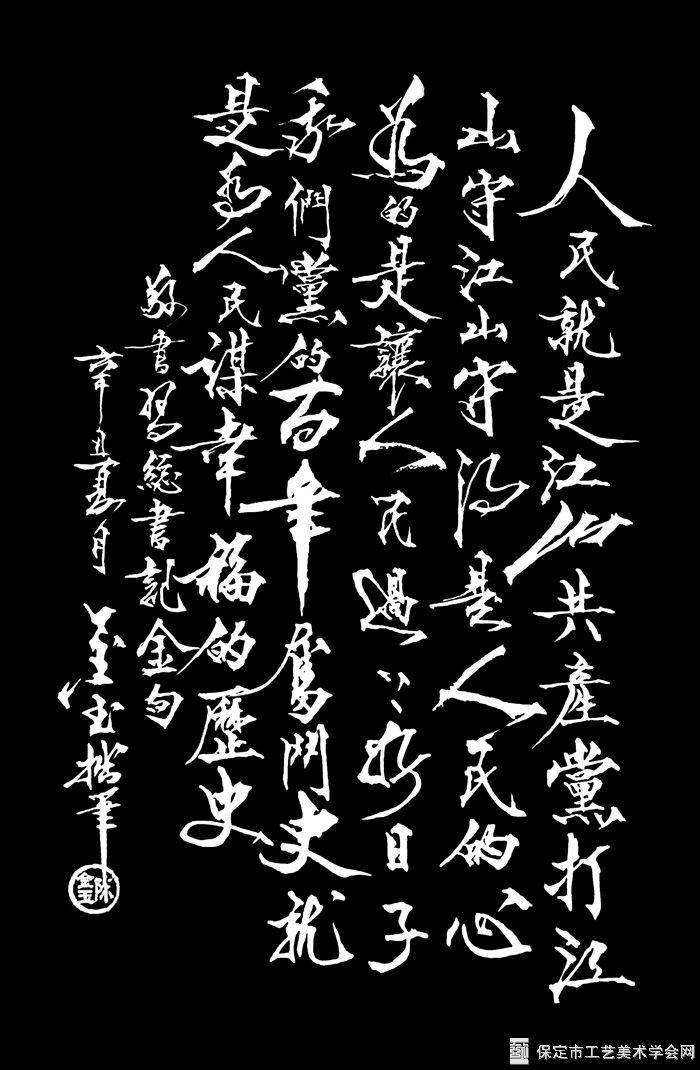 人民就是江山共產黨打江
山守江山守得是人民的心
為的是讓人民過上好日子
我們黨的百年奮鬥史就
是為人民謀幸福的歷史
敬書習總書記金句
辛丑夏月金玉拙筆
保定市工艺美术学会网